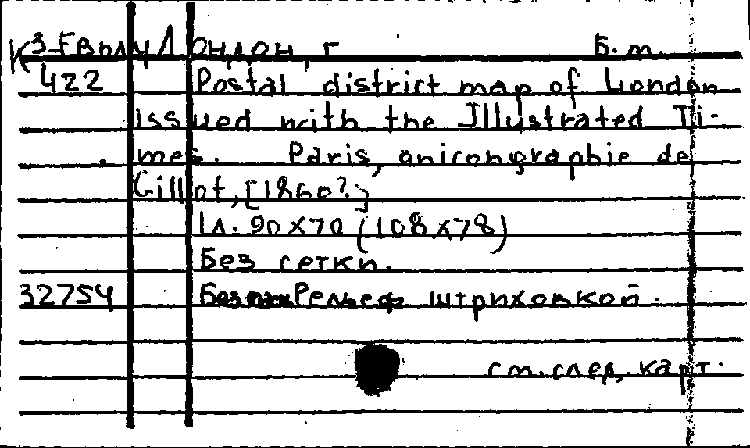 К 3-Еввлу Лондон, г Б.м.
422 Postal district map of London
issued with the Illustrated Ti-
mes. Paris, anicongraphie de
Gillot, [1860?]
1л. 90x70 (108x78)
Без сетки.
32754 Рельеф штриховкой.
см. след. карт.